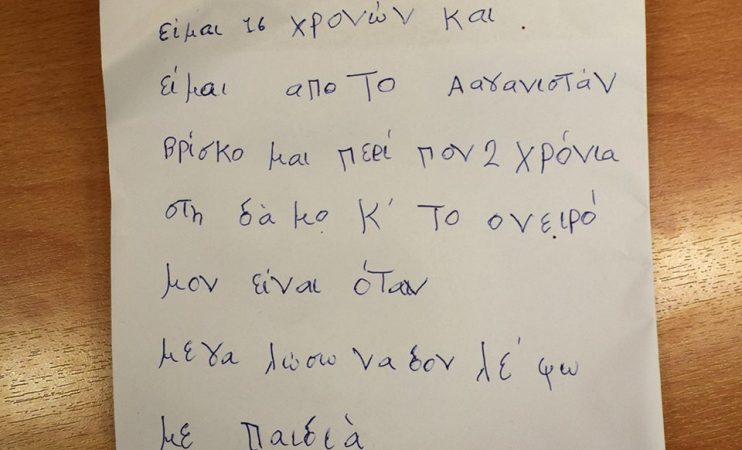 είμαι 16 χρονών και
είμαι απο το Ααγανιστάν
βρίσκο μαι περί πον 2 χρόνια
στη δὰμο κ' το ονειρό
μον είναι όταν
μεγα λώσω να δον λέ' ψω
με παιδιὰ